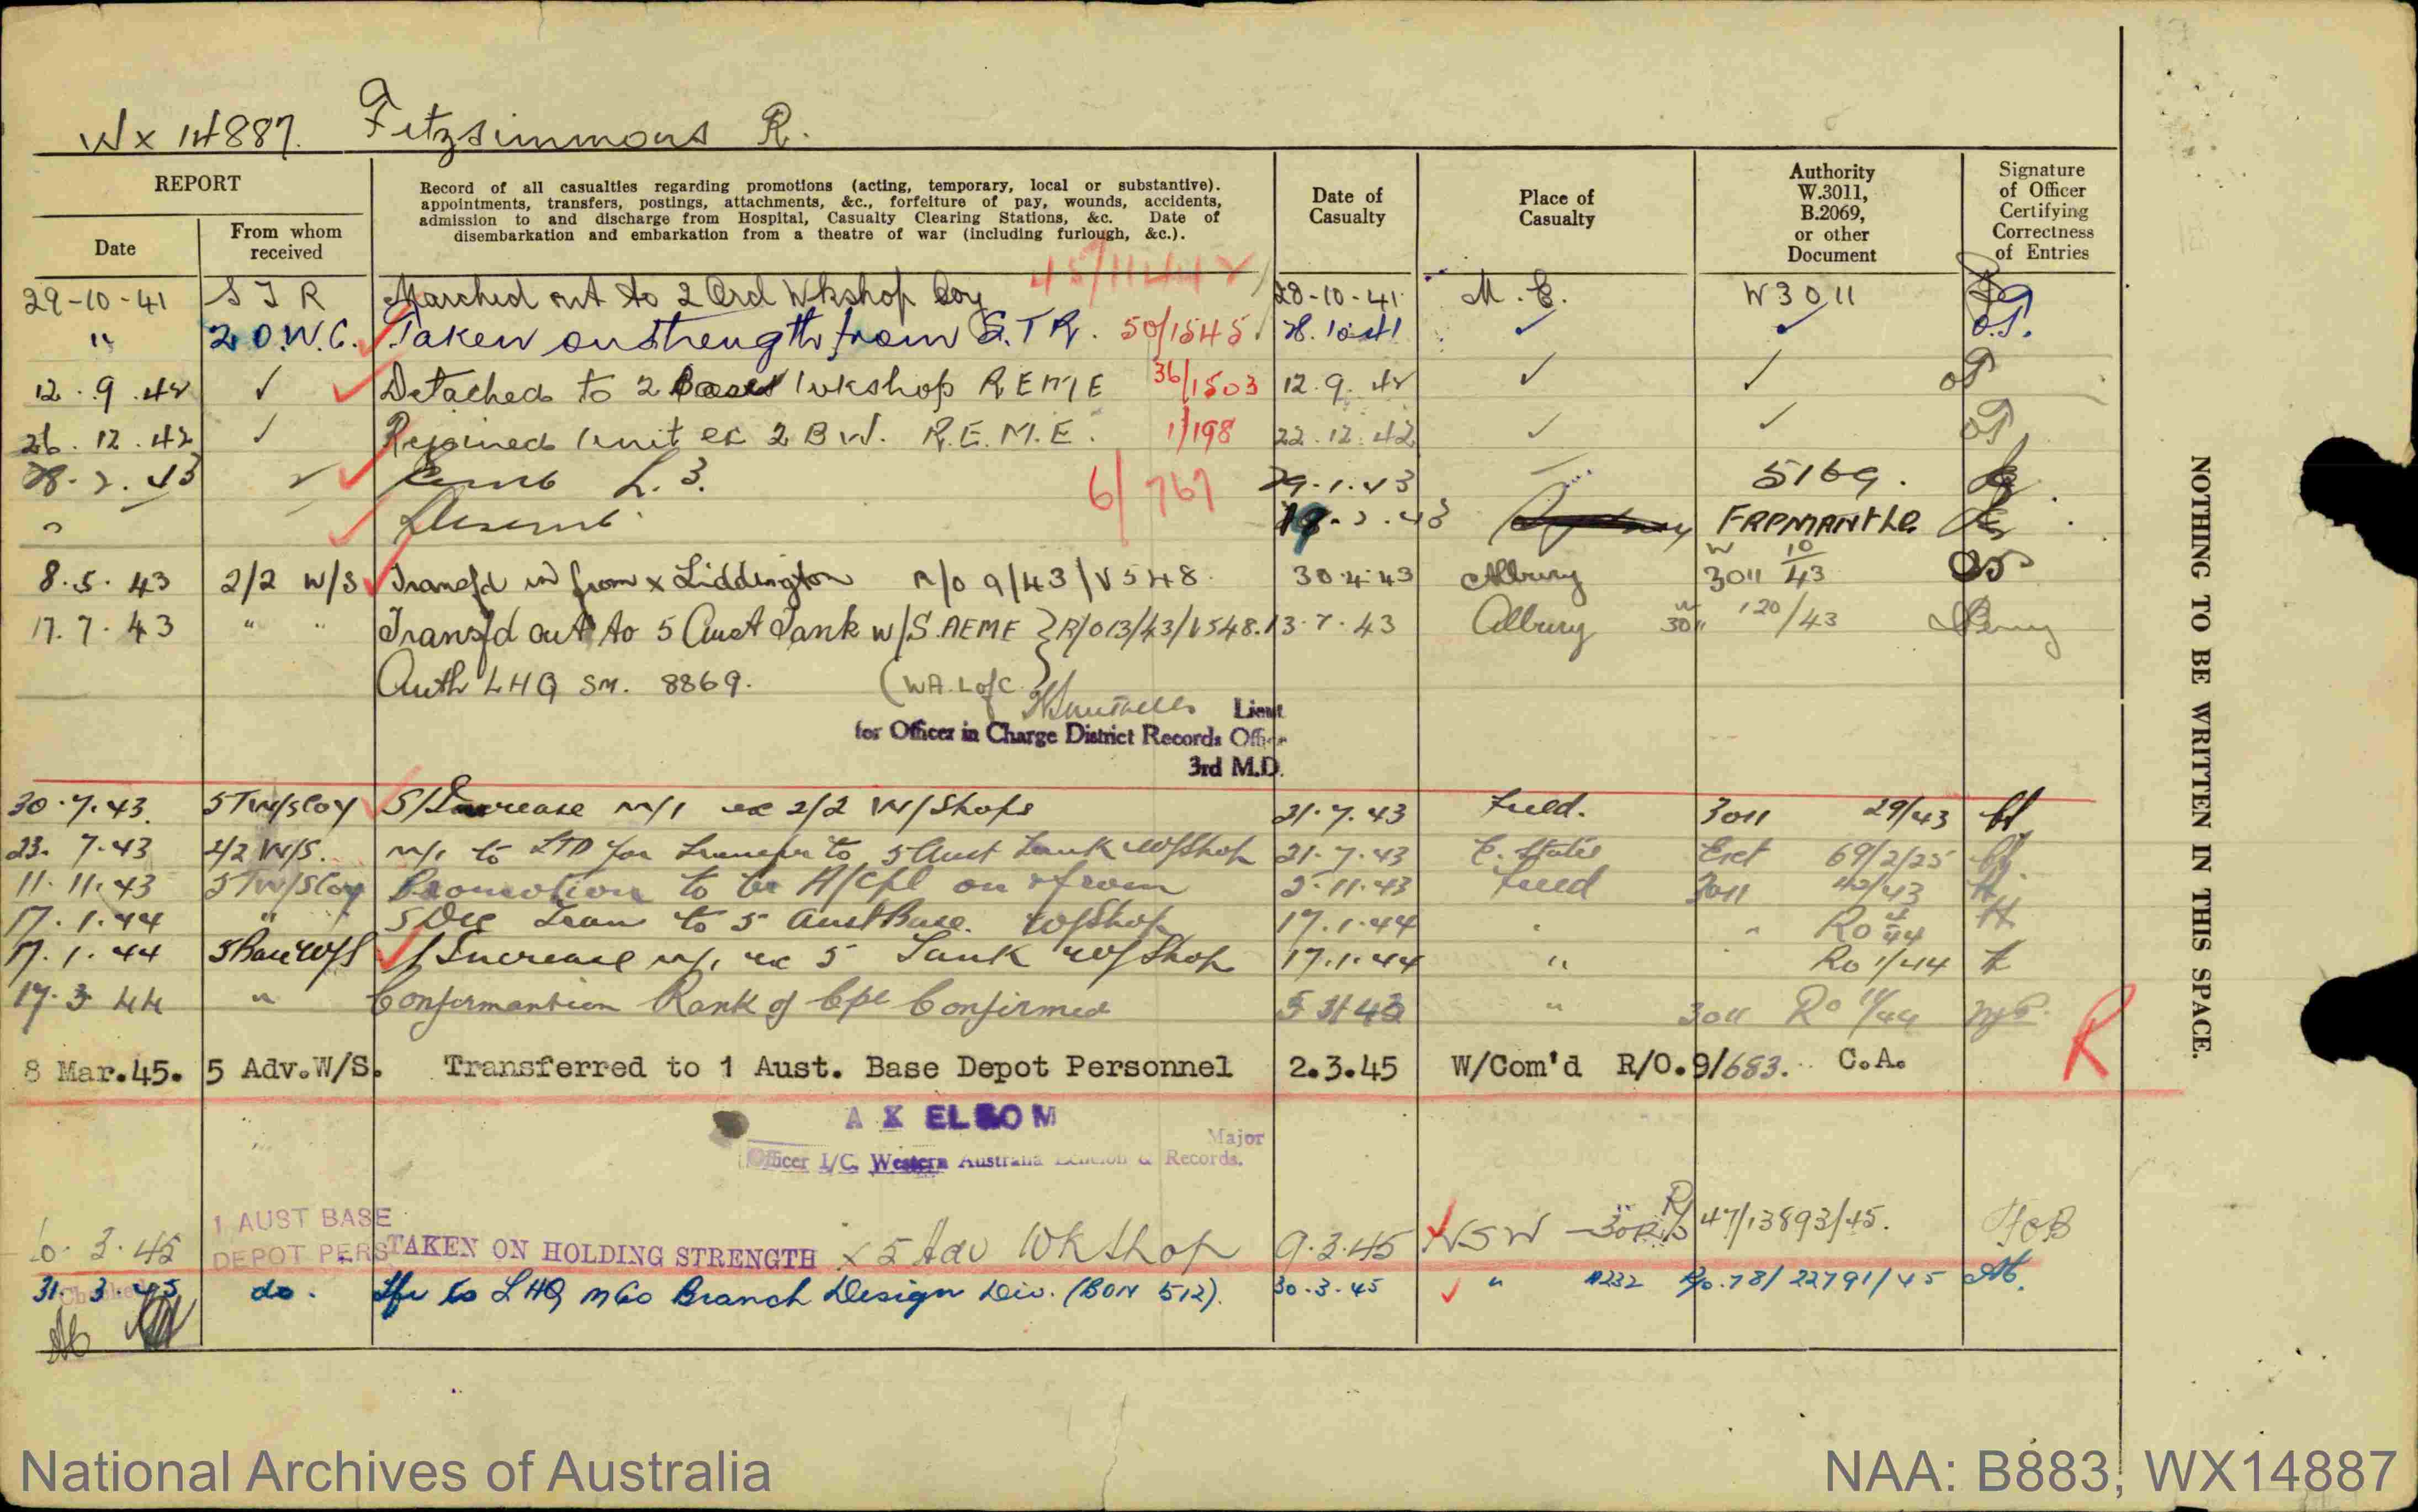 WX 14887. Fitzsimmons R.
REPORT
Date
From whom received
Record of all casualties regarding promotions (acting, temporary, local or substantive).
appointments, transfers, postings, attachments, &c., forfeiture of pay, wounds, accidents,
admission to and discharge from Hospital, Casualty Clearing Stations, &c. Date of
disembarkation and embarkation from a theatre of war (including furlough, &c.).
Date of Casualty
Place of Casualty
Authority W.3011, B.2069, or other Document
Signature of Officer Certifying Correctness of Entries
29-10-41 S T R Marched out to 2 Ord Wkshop Coy 28-10-41 M.E. W3011
" 2 O.W.C. Taken on strength from G.T.R. 50/1545 28.10.41
12.9.42 ✓ Detached to 2 Base Wkshop REME 36/1503 12.9.42 ✓ ✓
26.12.42 ✓ Rejoined Unit ex 2 B W. R.E.M.E. 1/198 22.12.42 ✓ ✓
28.2.43 ✓ Emb L.3. 6/767 29.1.43 5169.
" Disemb. 18.2.43 FREMANTLE
8.5.43 2/2 W/S Transfd in from x Liddington R/O 9/43/V548 30.4.43 Albury W 3011 10/43
17.7.43 " " Transfd out to 5 Aust Tank W/S AEME } R/O 13/43/V548. 13.7.43 Albury W 3011 120/43
Auth LHQ SM. 8869. (WA. L of C.
Lieut
for Officer in Charge District Records Office
3rd M.D.
30.7.43. 5TW/S Coy S/Increase m/i ex 2/2 W/Shops 21.7.43 Field. 3011 29/43
23.7.43 2/2 W/S. m/o to LTD for transfer to 5 Aust Tank W/Shop 21.7.43 E. States 69/2/25
11.11.43 5TW/S Coy Promotion to be A/Cpl on & from 5.11.43 Field 3011 42/43
17.1.44 " " S Dec Tran to 5 Aust Base. W/Shop 17.1.44 " " RO 4/44
17.1.44 5 Base W/S S/Increase m/i ex 5 Tank W/Shop 17.1.44 " RO 1/44
17.3.44 " Confirmantion Rank of Cpl Confirmed " 3011 RO 11/44
R
8 Mar.45. 5 Adv.W/S. Transferred to 1 Aust. Base Depot Personnel 2.3.45 W/Com'd R/O.9/683. C.A.
A K ELSOM
Major
Officer I/C. Western Australia Echelon & Records.
10.3.45 1 AUST BASE DEPOT PERS TAKEN ON HOLDING STRENGTH x 5 Adv Wkshop 9.3.45 NSW R/O 47/13893/45. FOB
31.3.45 do. Tfr to LHQ MGO Branch Design Div. (BON 512). 30.3.45 " A232 R/o.78/22791/45
NOTHING TO BE WRITTEN IN THIS SPACE.
National Archives of Australia
NAA: B883, WX14887